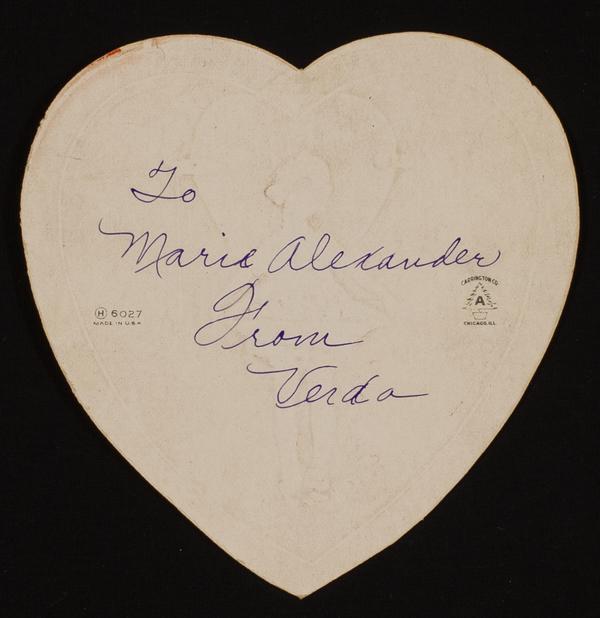 To
Marie Alexander
From
Verda
Ⓗ 6027
MADE IN U.S.A
CARRINGTON CO.
A
CHICAGO, ILL